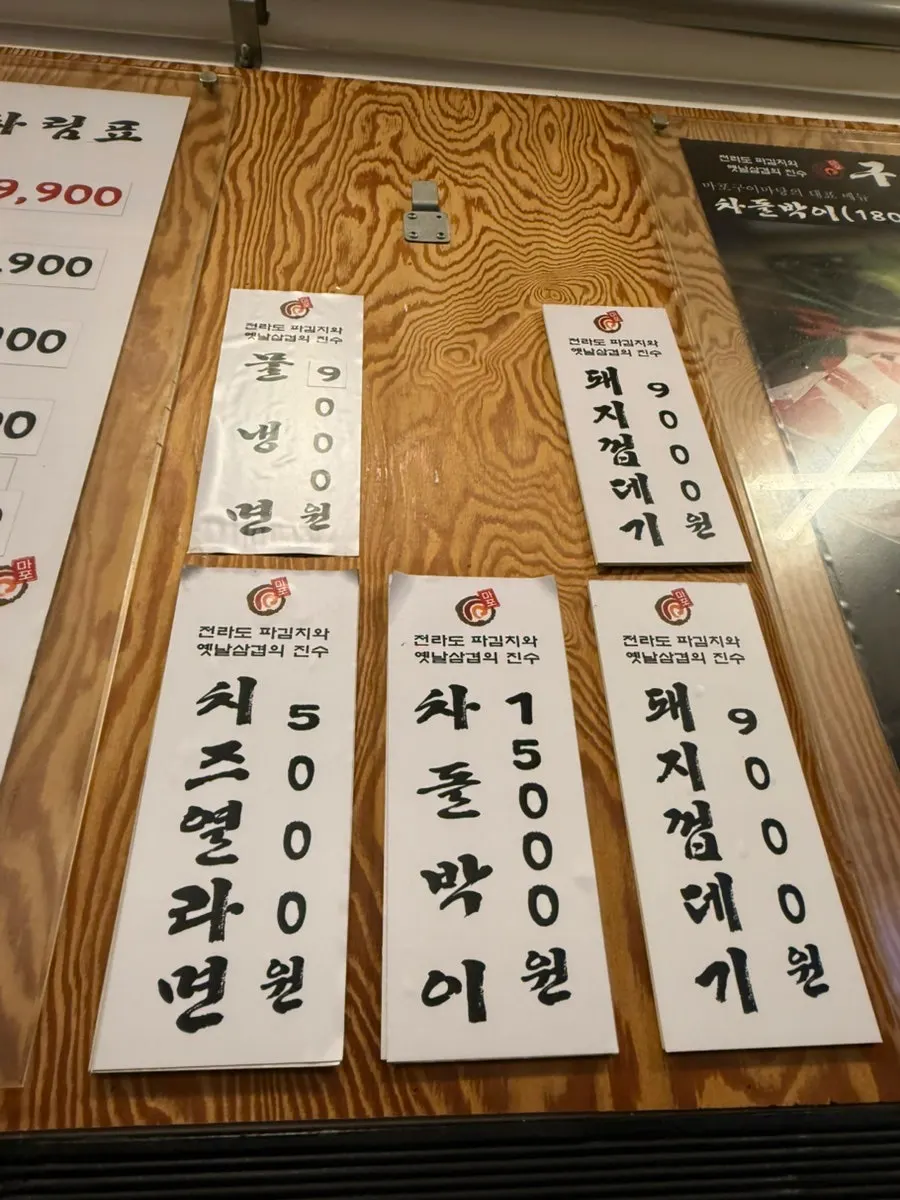 차림표
9,900
,900
전라도 파김치와
옛날삼겹의 진수
물냉면
9000원
전라도 파김치와
옛날삼겹의 진수
돼지껍데기
9000원
마포
전라도 파김치와
옛날삼겹의 진수
치즈열라면
5000원
마포
전라도 파김치와
옛날삼겹의 진수
차돌박이
15000원
마포
전라도 파김치와
옛날삼겹의 진수
돼지껍데기
9000원
마포
전라도 파김치와
옛날삼겹의 진수
구
마포구이마당의 대표 메뉴
차돌박이(180